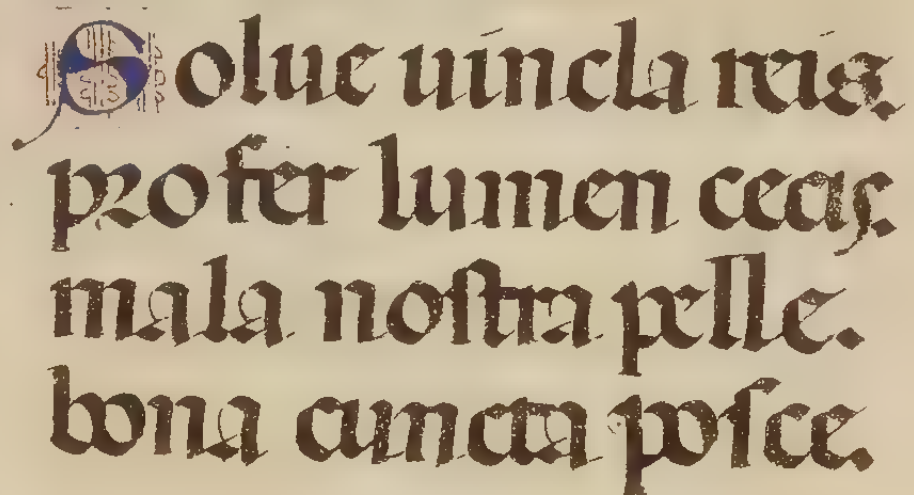 Solue uincla reis.
profer lumen cecis.
mala nostra pelle.
bona cuncta posce.